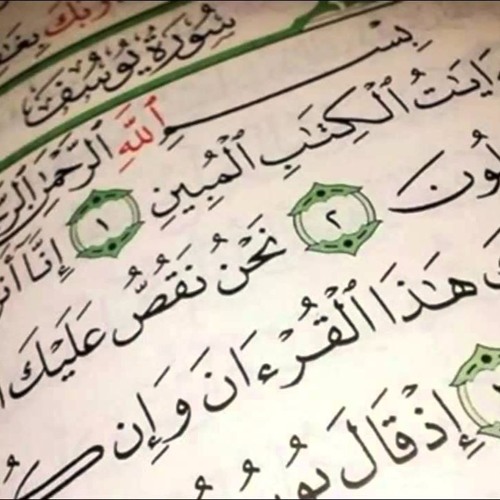 ربك بغـ
سُورَةُ يُوسُفَ
بِسْمِ ٱللَّهِ ٱلرَّحْمَٰنِ ٱلرَّ
ءَايَٰتُ ٱلْكِتَٰبِ ٱلْمُبِينِ ١ إِنَّآ أَنز
لُونَ ٢ نَحْنُ نَقُصُّ عَلَيْكَ
كَ هَٰذَا ٱلْقُرْءَانَ وَإِن كُ
٣ إِذْ قَالَ يُوسُ